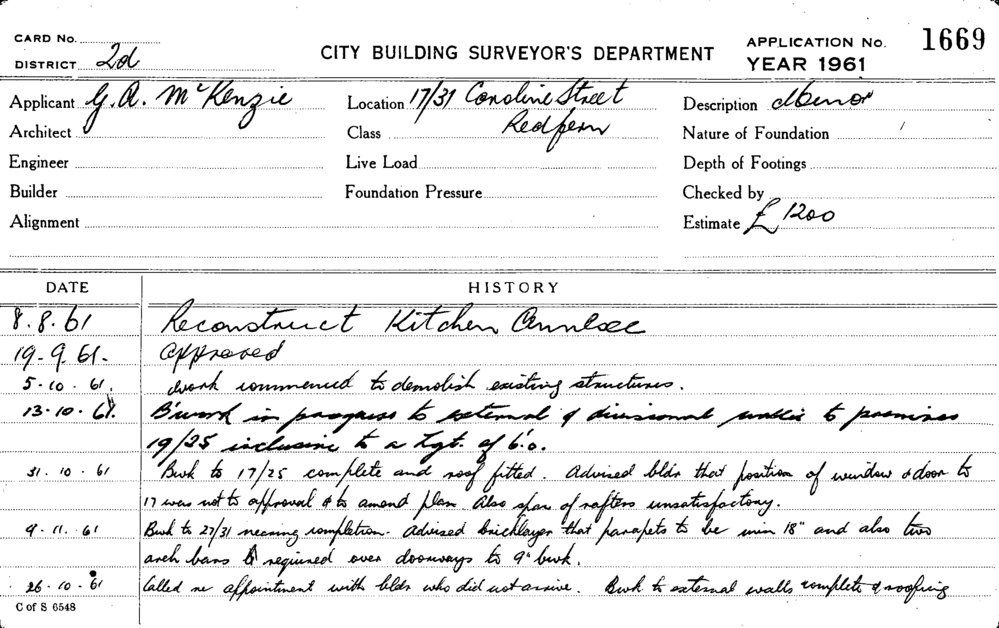 CARD No.
DISTRICT 2d
CITY BUILDING SURVEYOR'S DEPARTMENT
APPLICATION No. 1669
YEAR 1961
Applicant G. A. McKenzie
Location 17/31 Caroline Street
Redfern
Description Minor
Architect
Class
Nature of Foundation
Engineer
Live Load
Depth of Footings
Builder
Foundation Pressure
Checked by
Alignment
Estimate £ 1200
DATE HISTORY
8.8.61 Reconstruct Kitchen Annexe
19-9-61. Approved
5-10-61. Work commenced to demolish existing structures.
13-10-61. B'work in progress to external & divisional walls to premises
19/25 inclusive to a hgt. of 6'.0.
31.10.61 Bwk to 17/25 complete and roof fitted. Advised bldr that position of window & door to
17 was not to approval & to amend plan. Also span of rafters unsatisfactory.
9.11.61 Bwk to 27/31 nearing completion. Advised bricklayer that parapets to be min 18" and also two
arch bars required over doorways to 9" bwk.
26-10-61 Called re appointment with bldr who did not arrive. Bwk to external walls complete & roofing
C of S 6548